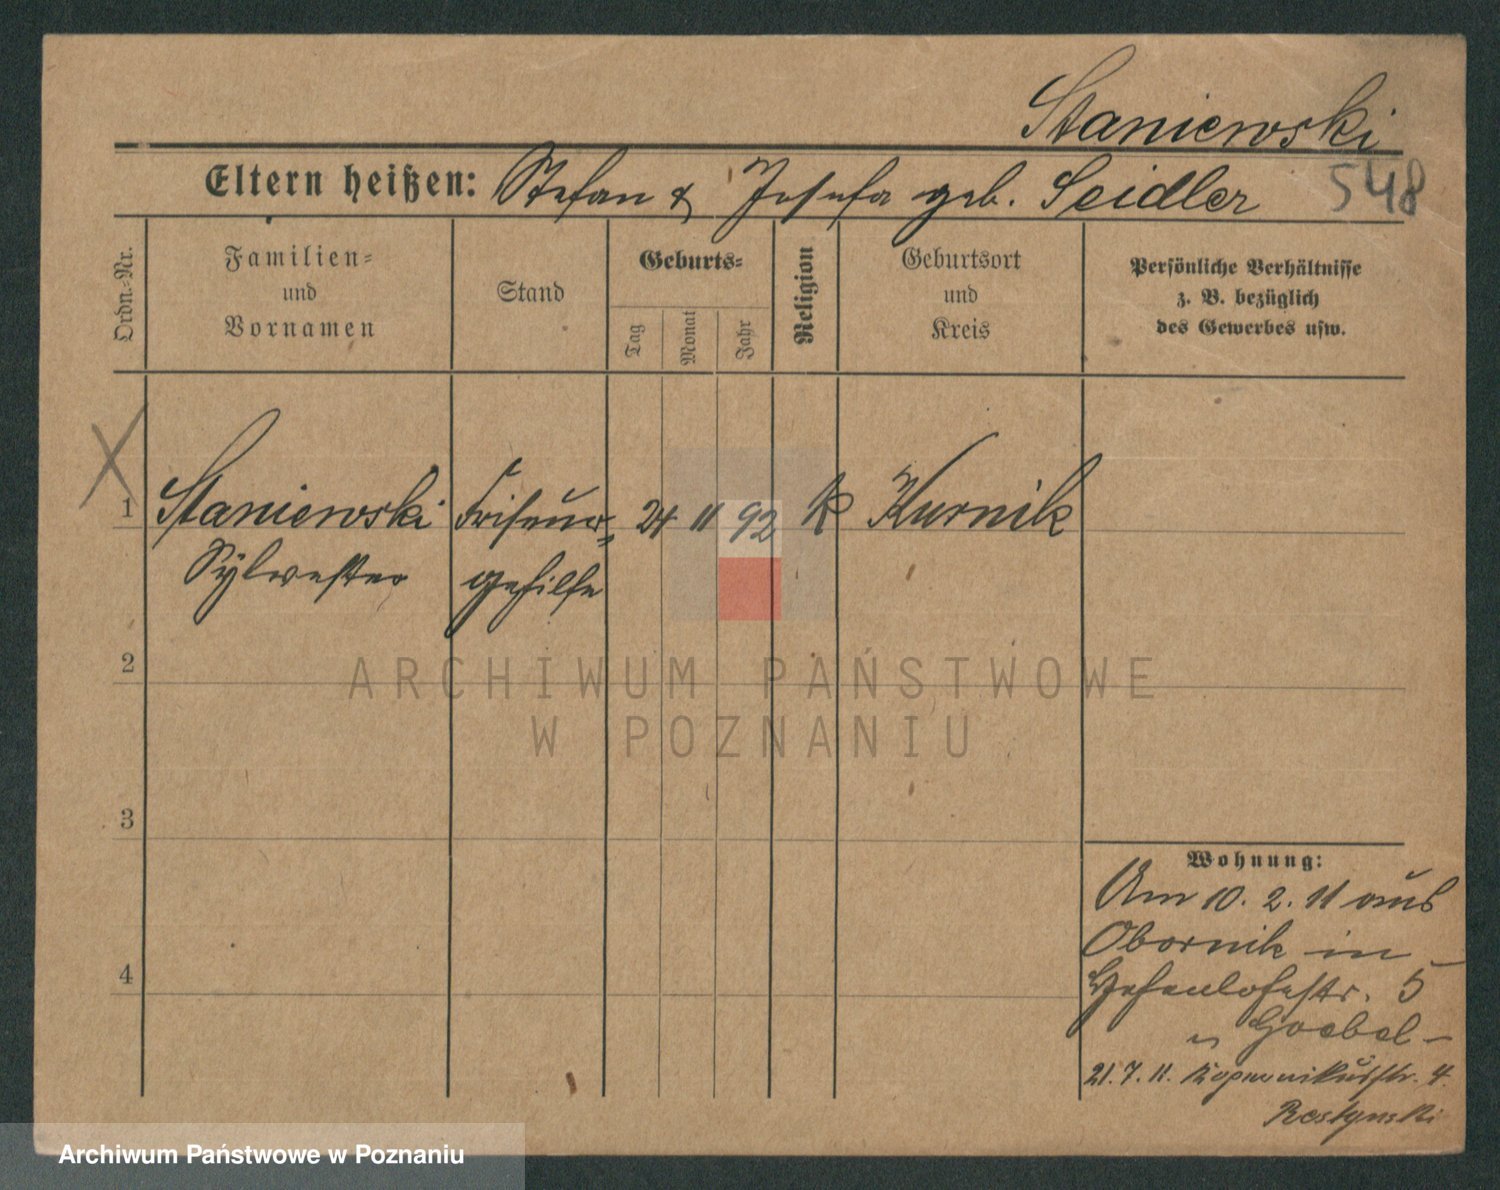 Staniewski
Eltern heißen: Stefan & Josefa geb. Seidler
548
Ordn.-Nr.
Familien-
und
Vornamen
Stand
Geburts-
Tag
Monat
Jahr
Religion
Geburtsort
und
Kreis
Persönliche Verhältnisse
z. B. bezüglich
des Gewerbes usw.
X
1 Staniewski Friseur- 24 11 92 K Kurnik
Sylwester gehilfe
2
3
4
ARCHIWUM PAŃSTWOWE
W POZNANIU
Wohnung:
Am 10. 2. 11 aus
Obornik in -
Hohenlohestr. 5
Goebel -
21.7.11. Kopernikusstr. 4.
Archiwum Państwowe w Poznaniu